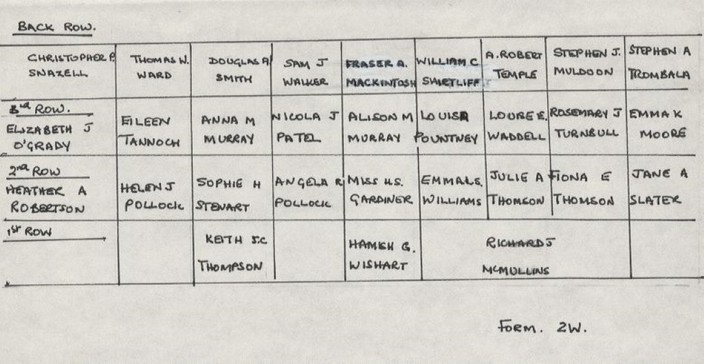 BACK ROW.
CHRISTOPHER P. THOMAS W. DOUGLAS A SAM J FRASER A. WILLIAM C. A. ROBERT STEPHEN J. STEPHEN A
SNAZELL WARD SMITH WALKER MACKINTOSH SHIRTLIFF TEMPLE MULDOON TROMBALA
3rd ROW.
ELIZABETH J EILEEN ANNA M NICOLA J ALISON M LOUISA LOURE E. ROSEMARY J EMMA K
O'GRADY TANNOCH MURRAY PATEL MURRAY POUNTNEY WADDELL TURNBULL MOORE
2nd ROW
HEATHER A HELEN J SOPHIE H ANGELA R MISS H.S. EMMA L.S. JULIE A FIONA E JANE A
ROBERTSON POLLOCK STEWART POLLOCK GARDINER WILLIAMS THOMSON THOMSON SLATER
1st ROW
KEITH J.C. HAMISH G. RICHARD J
THOMPSON WISHART MCMULLINS
FORM. 2W.